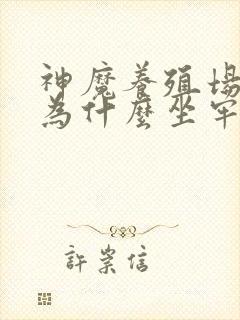 神魔養殖場
為什麼坐牢
許崇信